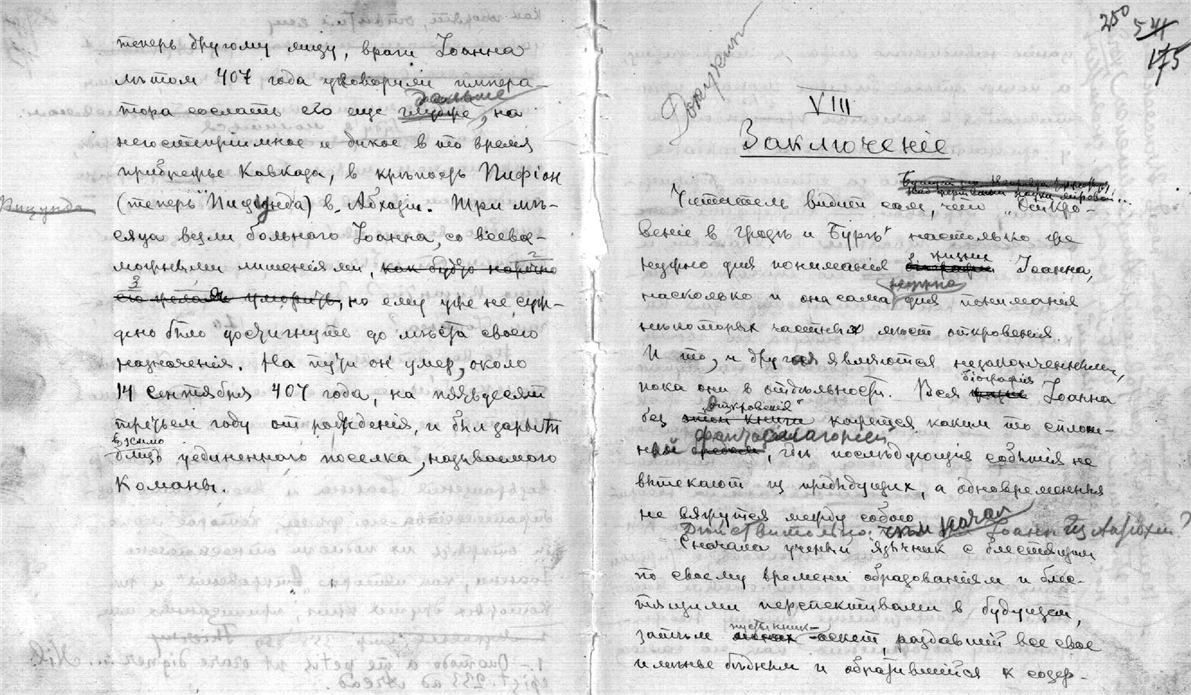 теперь другому лицу, враги Іоанна
лѣтом 407 года уговорили импера-
дальше
тора сослать его еще глубже, на
негостепріимное и дикое в то время
прибрежье Кавказа, в крѣпость Пифіон
Пицунда
(теперь Пицунда) в Абхазіи. Три мѣ-
сяца везли больного Іоанна, со всевоз-
можными лишеніями, как будто нарочно
его желая уморить, но ему уже не суж-
дено было достигнуть до мѣста своего
назначенія. На пути он умер, около
14 Сентября 407 года, на пятьдесят
третьем году от рожденія, и был зарыт
близь уединенного поселка, называемого
Команы.
250
175
VIII
Заключеніе
Читатель видит сам, что „Откро-
веніе в Грозѣ и Бурѣ" настолько же
жизни
нужно для пониманія Іоанна,
нужна
насколько и она сама для пониманія
нѣкоторых частных мѣст откровенія.
И то, и другая являются незаконченными,
біографія
пока они в отдѣльности. Вся Іоанна
„Откровенія"
без этой книги кажется каким то сплош-
ной, гдѣ послѣдующія событія не
вытекают из предъидущих, а одновременныя
не вяжутся между собою
Дѣйствительно, чѣм начал Іоанн из Антіохіи?
Сначала ученый язычник с блестящим
по своему времени образованіем и блес-
тящими перспективами в будущем,
пустынник
затѣм монах-аскет, раздавшій все свое
имѣнье бѣдным и обратившійся к созер-